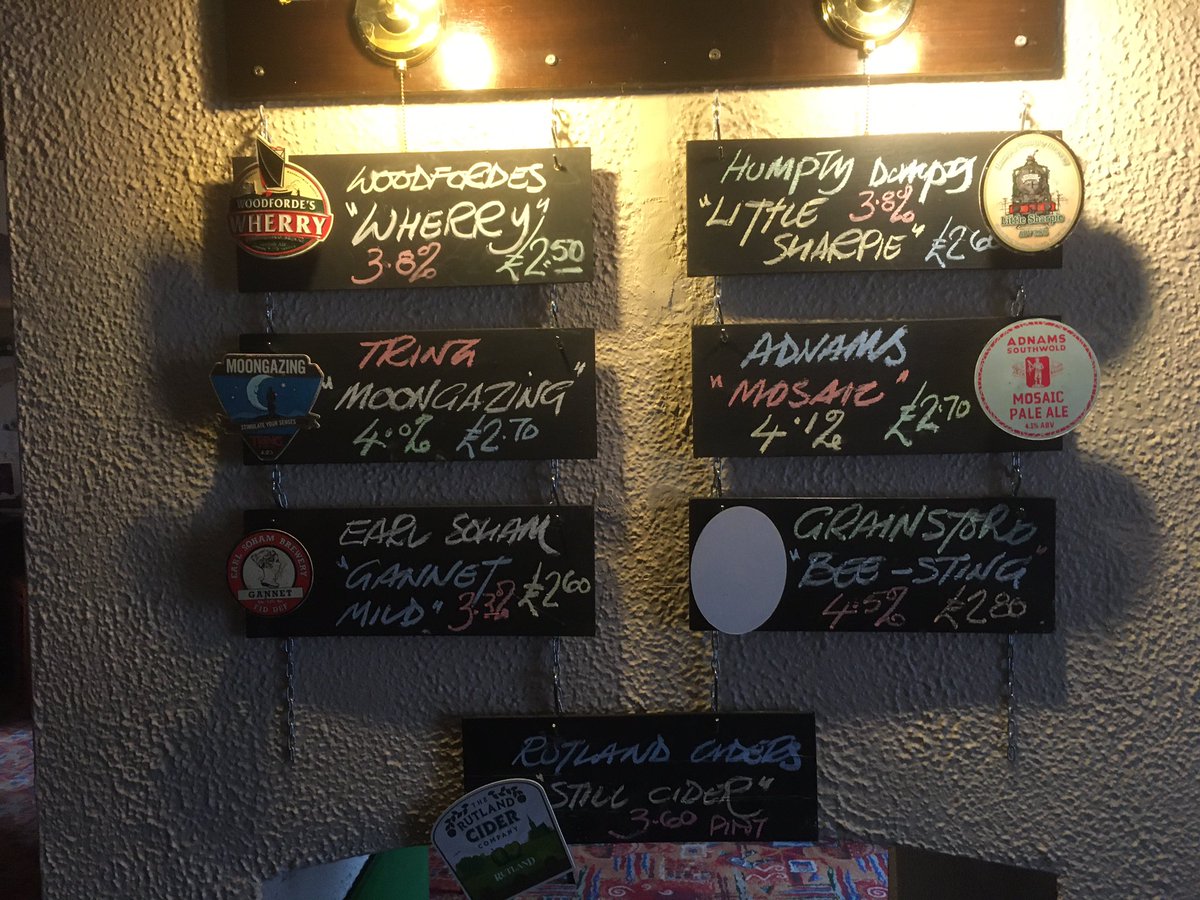 WOODFORDE'S
WHERRY
WOODFORDES
"WHERRY"
3.8% £2.50
HUMPTY DUMPTY
"LITTLE 3.8%
SHARPIE" £2.60
Little Sharpie
MOONGAZING
STIMULATE YOUR SENSES
TRING
TRING
"MOONGAZING"
4.0% £2.70
ADNAMS
"MOSAIC"
4.1% £2.70
ADNAMS
SOUTHWOLD
MOSAIC
PALE ALE
4.1% ABV
EARL SOHAM BREWERY
GANNET
EARL SOHAM
"GANNET £2.60
MILD" 3.3%
GRAINSTORE
"BEE-STING"
4.5% £2.80
RUTLAND CIDERS
"STILL CIDER"
3.60 PINT
THE
RUTLAND
CIDER
COMPANY
RUTLAND